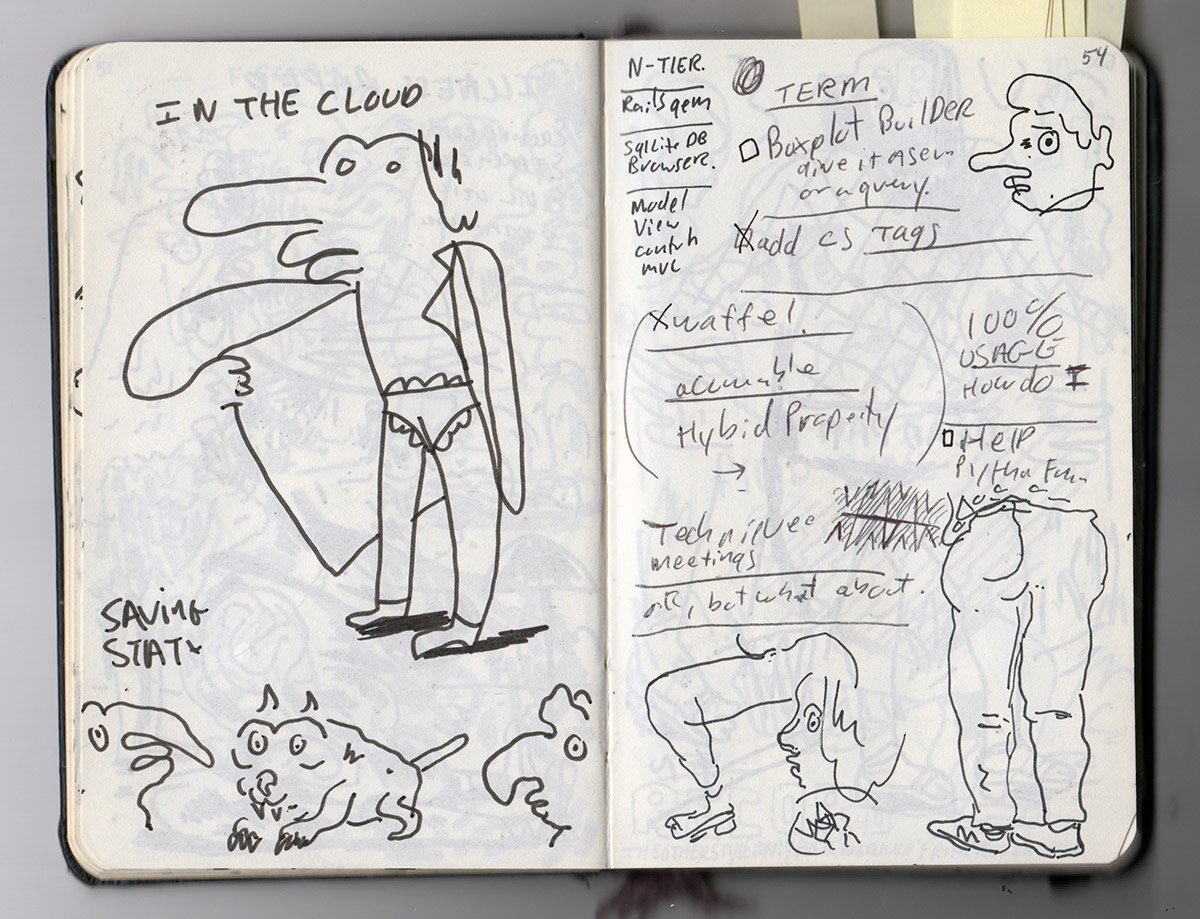 IN THE CLOUD
SAVING
STATE
54
N-TIER.
Rails gem
SqlLite DB
Browser.
Model
View
mvc
TERM.
Boxplot BuilDER
give it a sem
or a query.
add CS TAGS
waffel.
Hybid Property
→
100%
USAGE
How do I
Help
Python Fun
Technique
meetings
ok, but what about.